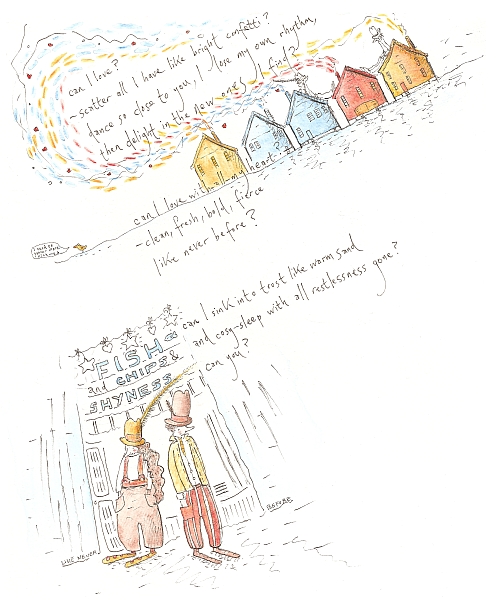 can I love?
-scatter all I have like bright confetti?
dance so close to you, I lose my own rhythm,
then delight in the new ones I find?
can I love with-all-my heart?
-clean, fresh, bold, fierce
like never before?
can I sink into trust like warm sand
and cosy-sleep with all restlessness gone?
can you?
FISH
and CHIPS &
SHYNESS
LIKE NEVER
BEFORE